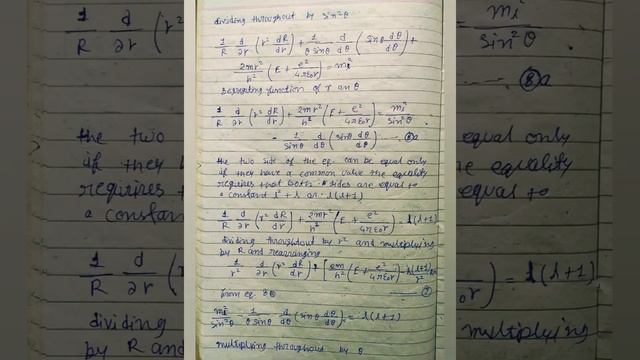 dividing throughout by sin²θ
1/R d/∂r (r² dR/dr) + 1/θ sinθ d/dθ (sinθ dθ/dθ) +
2mr²/ħ² (E + e²/4πε₀r) = mₗ²
Separating function of r an θ
1/R d/∂r (r² dR/dr) + 2mr²/ħ² (E + e²/4πε₀r) = mₗ²/sin²θ
- 1/sinθ d/dθ (sinθ dθ/dθ) ---- 8a
the two side of the eq. can be equal only
if they have a common value the equality
requires that both sides are equal to
a constant l² + l or l(l+1)
1/R d/∂r (r² dR/dr) + 2mr²/ħ² (E + e²/4πε₀r) = l(l+1)
dividing throughout by r² and multiplying
by R and rearranging
1/r² d/∂r (r² dR/dr) + [2m/ħ² (E + e²/4πε₀r) - l(l+1)/r²]
from eq.
mₗ²/sin²θ - 1/θ sinθ d/dθ (sinθ dθ/dθ) = l(l+1)
multiplying throughout by θ